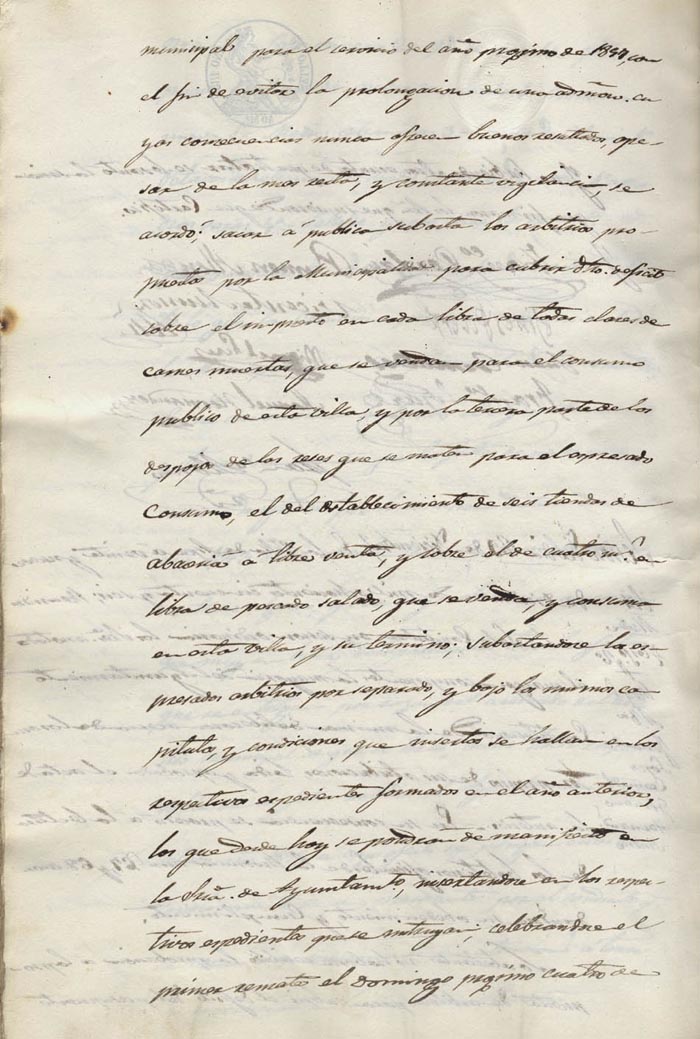 municipal para el servicio del año proximo de 1857, con
el fin de evitar la prolongacion de una admon. cu
yas consecuencias nunca ofrecen buenos resultados, ape-
sar de la mas recta, y constante vigilancia, se
acordó; sacar á publica subasta los arbitrios pro-
puestos por la Municipalidad para cubrir dho. deficit
sobre el impuesto en cada libra de todas clases de
carnes muertas, que se vendan para el consumo
publico de esta villa, y por la tercera parte de los
despojos de las reses que se maten para el espresado
Consumo, el del establecimiento de seis tiendas de
abaceria á libre venta, y sobre el de cuatro mrs. en
libra de pescado salado, que se venda, y consuma
en esta villa, y su termino; subastandose los es-
presados arbitrios por separado, y bajo los mismos ca
pitulos, y condiciones que insertos se hallan en los
respectivos expedientes formados en el año anterior,
los que desde hoy se pondran de manifiesto en
la Sria. de Ayuntamto., insertandose en los respec-
tivos expedientes que se instruyan, celebrandose el
primer remate el Domingo proximo cuatro de